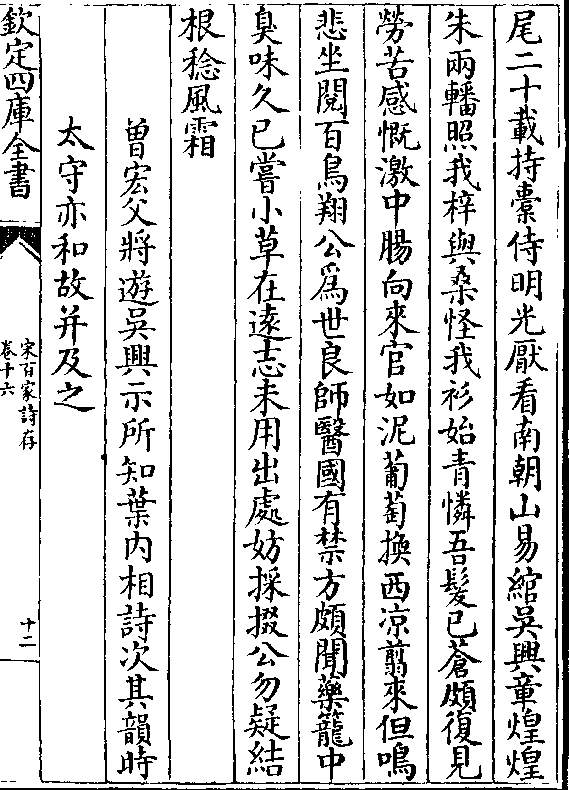 尾二十載持橐侍明光厭看南朝山易綰吳興章煌煌
朱兩轓照我梓與桑怪我衫始青憐吾髮已蒼頗復見
勞苦感慨激中腸向來官如泥葡萄換西凉翦來但鳴
悲坐閱百鳥翔公爲世良師醫國有禁方頗聞藥籠中
臭味久已嘗小草在遠志未用出處妨採掇公勿疑結
根稔風霜
曾宏父將遊吳興示所知葉内相詩次其韻時
太守亦和故并及之
欽定四庫全書
宋百家詩存
卷十六
十二